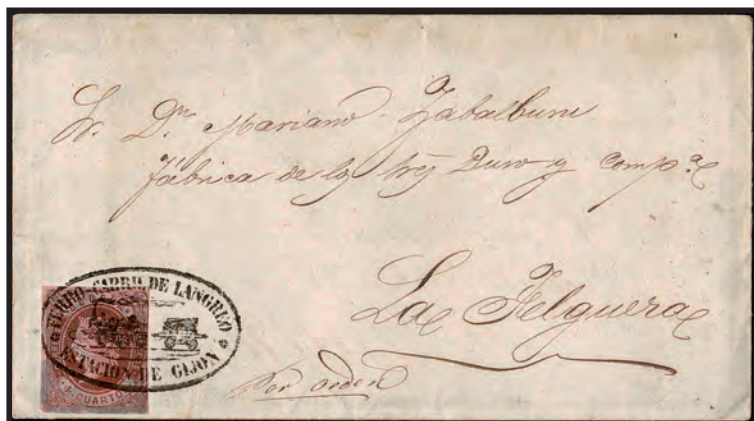 Sr. Dn. Mariano Zabalburu
fábrica de los Sres Duro y Compª
La Felguera
Por orden
FERRO-CARRIL DE LANGREO
ESTACION DE GIJON
CUARTOS